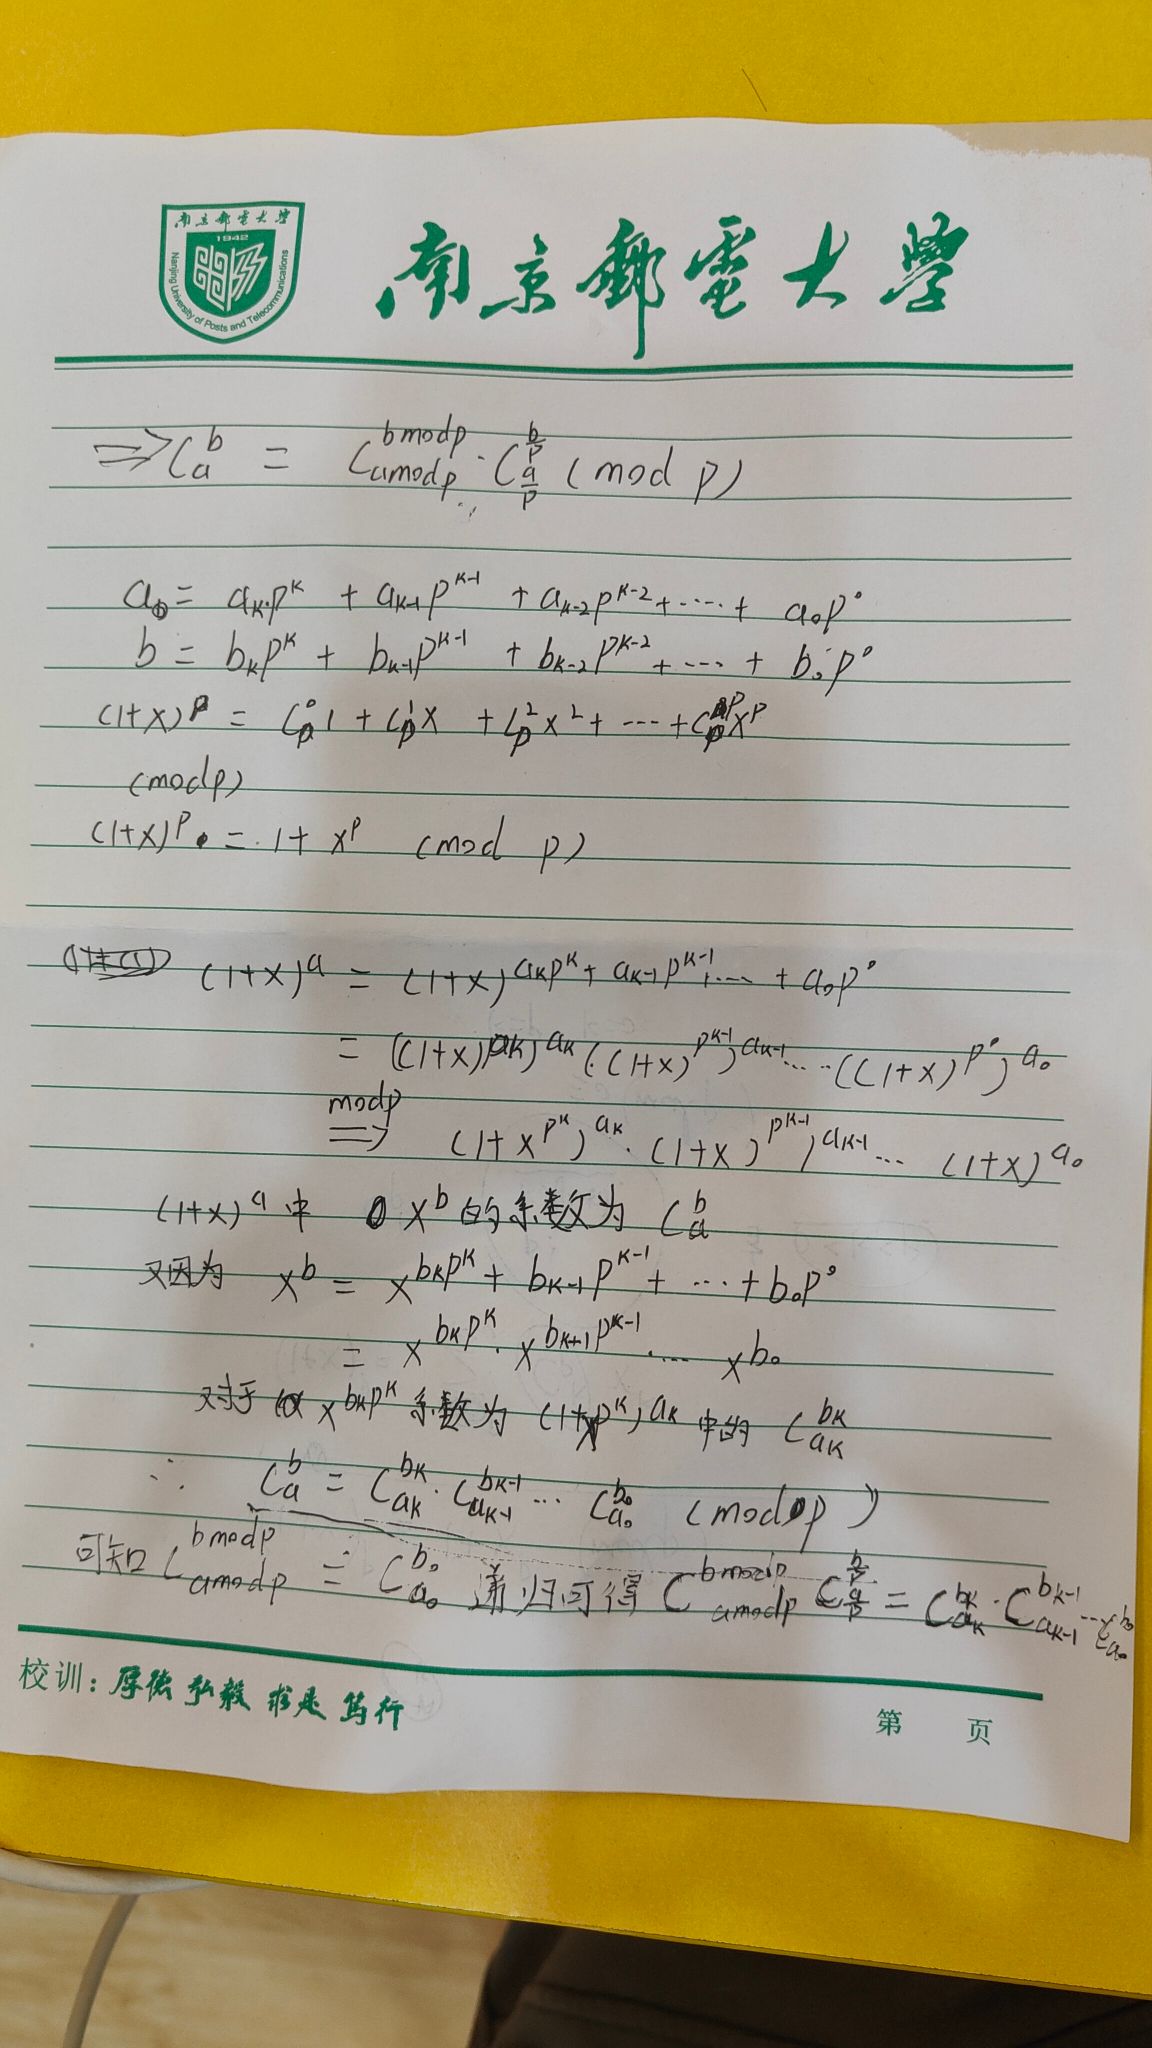 南京邮电大学
1942
Nanjing University of Posts and Telecommunications
南京郵電大學
⇒ C_a^b = C_{a mod p}^{b mod p} · C_{a/p}^{b/p} (mod p)
a = a_k·p^k + a_{k-1}p^{k-1} + a_{k-2}p^{k-2} + ···· + a_0p^0
b = b_kp^k + b_{k-1}p^{k-1} + b_{k-2}p^{k-2} + ··· + b_0p^0
(1+x)^p = C_p^0 1 + C_p^1 x + C_p^2 x^2 + ··· + C_p^p x^p
(mod p)
(1+x)^p = 1 + x^p (mod p)
(1+x)^a = (1+x)^{a_kp^k + a_{k-1}p^{k-1} + ··· + a_0p^0}
= ((1+x)^{p^k})^{a_k} · ((1+x)^{p^{k-1}})^{a_{k-1}} ···· ((1+x)^{p^0})^{a_0}
mod p
⇒ (1+x^{p^k})^{a_k} · (1+x)^{p^{k-1}})^{a_{k-1}} ··· (1+x)^{a_0}
(1+x)^a 中 x^b 的系数为 C_a^b
又因为 x^b = x^{b_kp^k + b_{k-1}p^{k-1} + ··· + b_0p^0}
= x^{b_kp^k} · x^{b_{k+1}p^{k-1}} ···· x^{b_0}
对于 x^{b_kp^k} 系数为 (1+x^{p^k})^{a_k} 中的 C_{a_k}^{b_k}
∴ C_a^b = C_{a_k}^{b_k} · C_{a_{k-1}}^{b_{k-1}} ··· C_{a_0}^{b_0} (mod p)
可知 C_{a mod p}^{b mod p} = C_{a_0}^{b_0} 递归可得 C_{a mod p}^{b mod p} C_{a/p}^{b/p} = C_{a_k}^{b_k} · C_{a_{k-1}}^{b_{k-1}} ··· C_{a_0}^{b_0}
校训：厚德 弘毅 求是 笃行
第 页